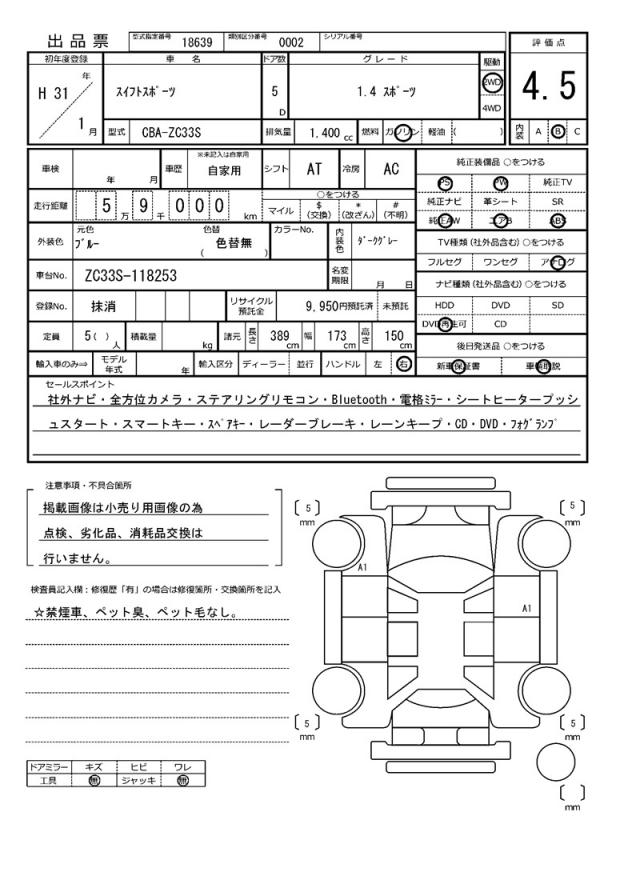 出品票 型式指定番号 18639 類別区分番号 0002 シリアル番号
評価点
4.5
内装 A B C
初年度登録 車名 ドア数 グレード 駆動
H 31 年 1 月
スイフトスポーツ 5 D 1.4 スポーツ 2WD 4WD
型式 CBA-ZC33S 排気量 1.400 cc 燃料 ガソリン 軽油 ( )
車検 年 月 車歴 ※未記入は自家用 自家用 シフト AT 冷房 AC
走行距離 5 万 9 千 0 0 0 km
○をつける
マイル $(交換) *(改ざん) #(不明)
外装色 元色 ブルー 色替 ( 色替無 ) カラーNo. 内装色 ダークグレー
車台No. ZC33S-118253 名変期限 月 日
登録No. 抹消 リサイクル預託金 9,950円預託済 未預託
定員 5( )人 積載量 kg 諸元 長さ 389 cm 幅 173 cm 高さ 150 cm
輸入車のみ⇒ モデル年式 年 輸入区分 ディーラー 並行 ハンドル 左 右
純正装備品 ○をつける
PS PW 純正TV
純正ナビ 革シート SR
純正AW エアB ABS
TV種類(社外品含む)○をつける
フルセグ ワンセグ アナログ
ナビ種類(社外品含む)○をつける
HDD DVD SD
DVD再生可 CD
後日発送品 ○をつける
新車保証書 車輌取説
セールスポイント
社外ナビ・全方位カメラ・ステアリングリモコン・Bluetooth・電格ミラー・シートヒータープッシ
ュスタート・スマートキー・スペアキー・レーダーブレーキ・レーンキープ・CD・DVD・フォグランプ
注意事項・不具合箇所
掲載画像は小売り用画像の為
点検、劣化品、消耗品交換は
行いません。
検査員記入欄：修復歴「有」の場合は修復箇所・交換箇所を記入
☆禁煙車、ペット臭、ペット毛なし。
ドアミラー キズ ヒビ ワレ
工具 無 ジャッキ 無
5 mm
5 mm
A1
A1
5 mm
5 mm
mm